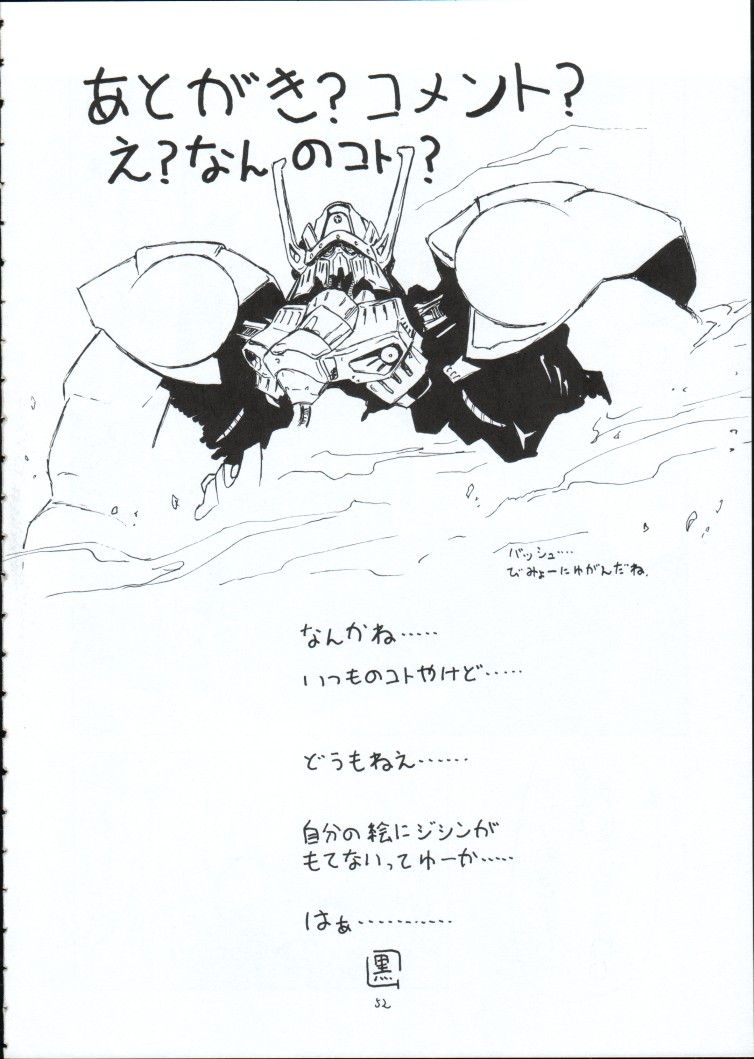 あとがき？コメント？
え？なんのコト？
バッシュ‥‥
びみょーにゆがんだね.
なんかね‥‥‥
いつものコトやけど‥‥‥
どうもねえ‥‥‥‥
自分の絵にジシンが
もてないってゆーか‥‥‥
はぁ‥‥‥‥‥‥
黒
52